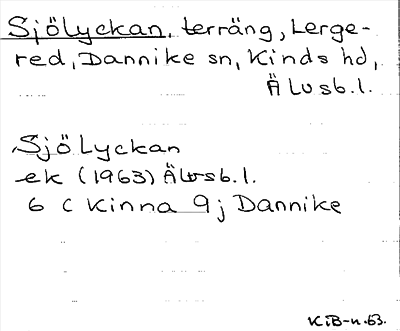 Sjölyckan, terräng, Lerge-
red, Dannike sn, Kinds hd,
Älvsb.l.
Sjölyckan
ek (1963) Älvsb.l.
6 C Kinna 9j Dannike
KiB-n.63.